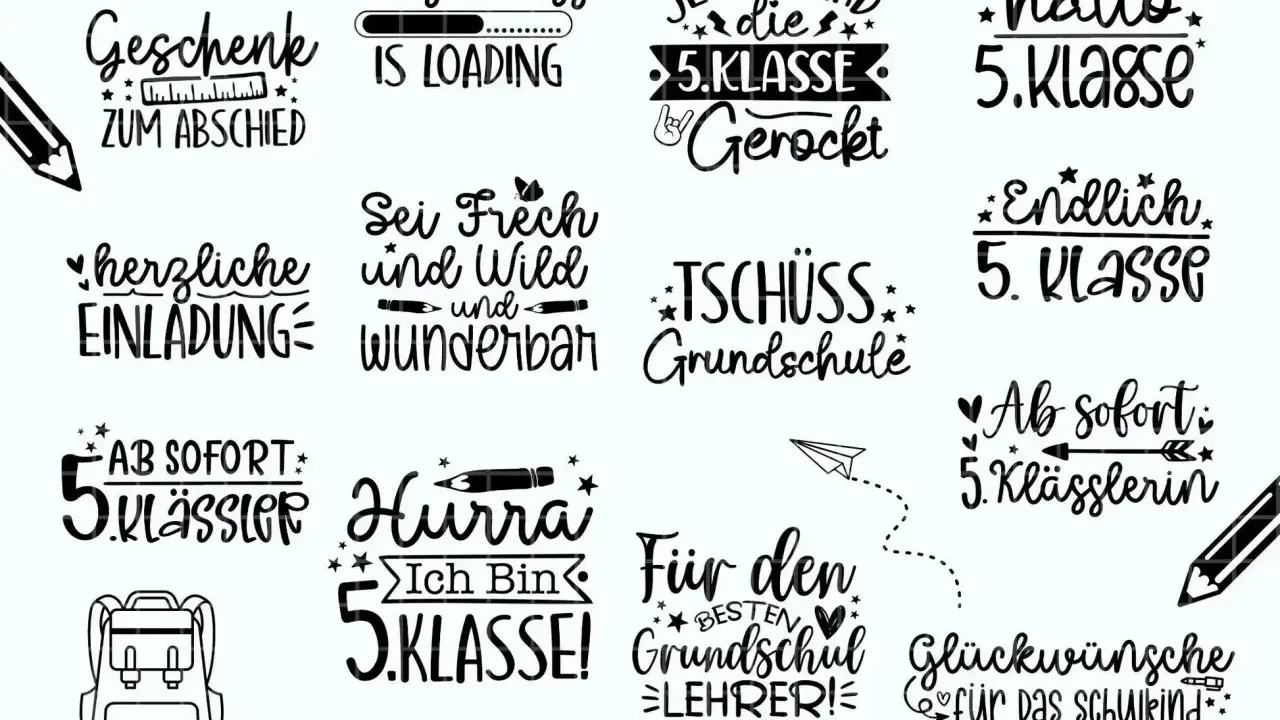 Geschenk
ZUM ABSCHIED
IS LOADING
die
5.KLASSE
Gerockt
hallo
5.Klasse
herzliche
EINLADUNG
Sei Frech
und Wild
und
wunderbar
TSCHÜSS
Grundschule
Endlich
5. Klasse
AB SOFORT
5.Klässler
Hurra
Ich Bin
5.KLASSE!
Für den
BESTEN
Grundschul
LEHRER!
Ab sofort
5.Klässlerin
Glückwünsche
für das schulkind